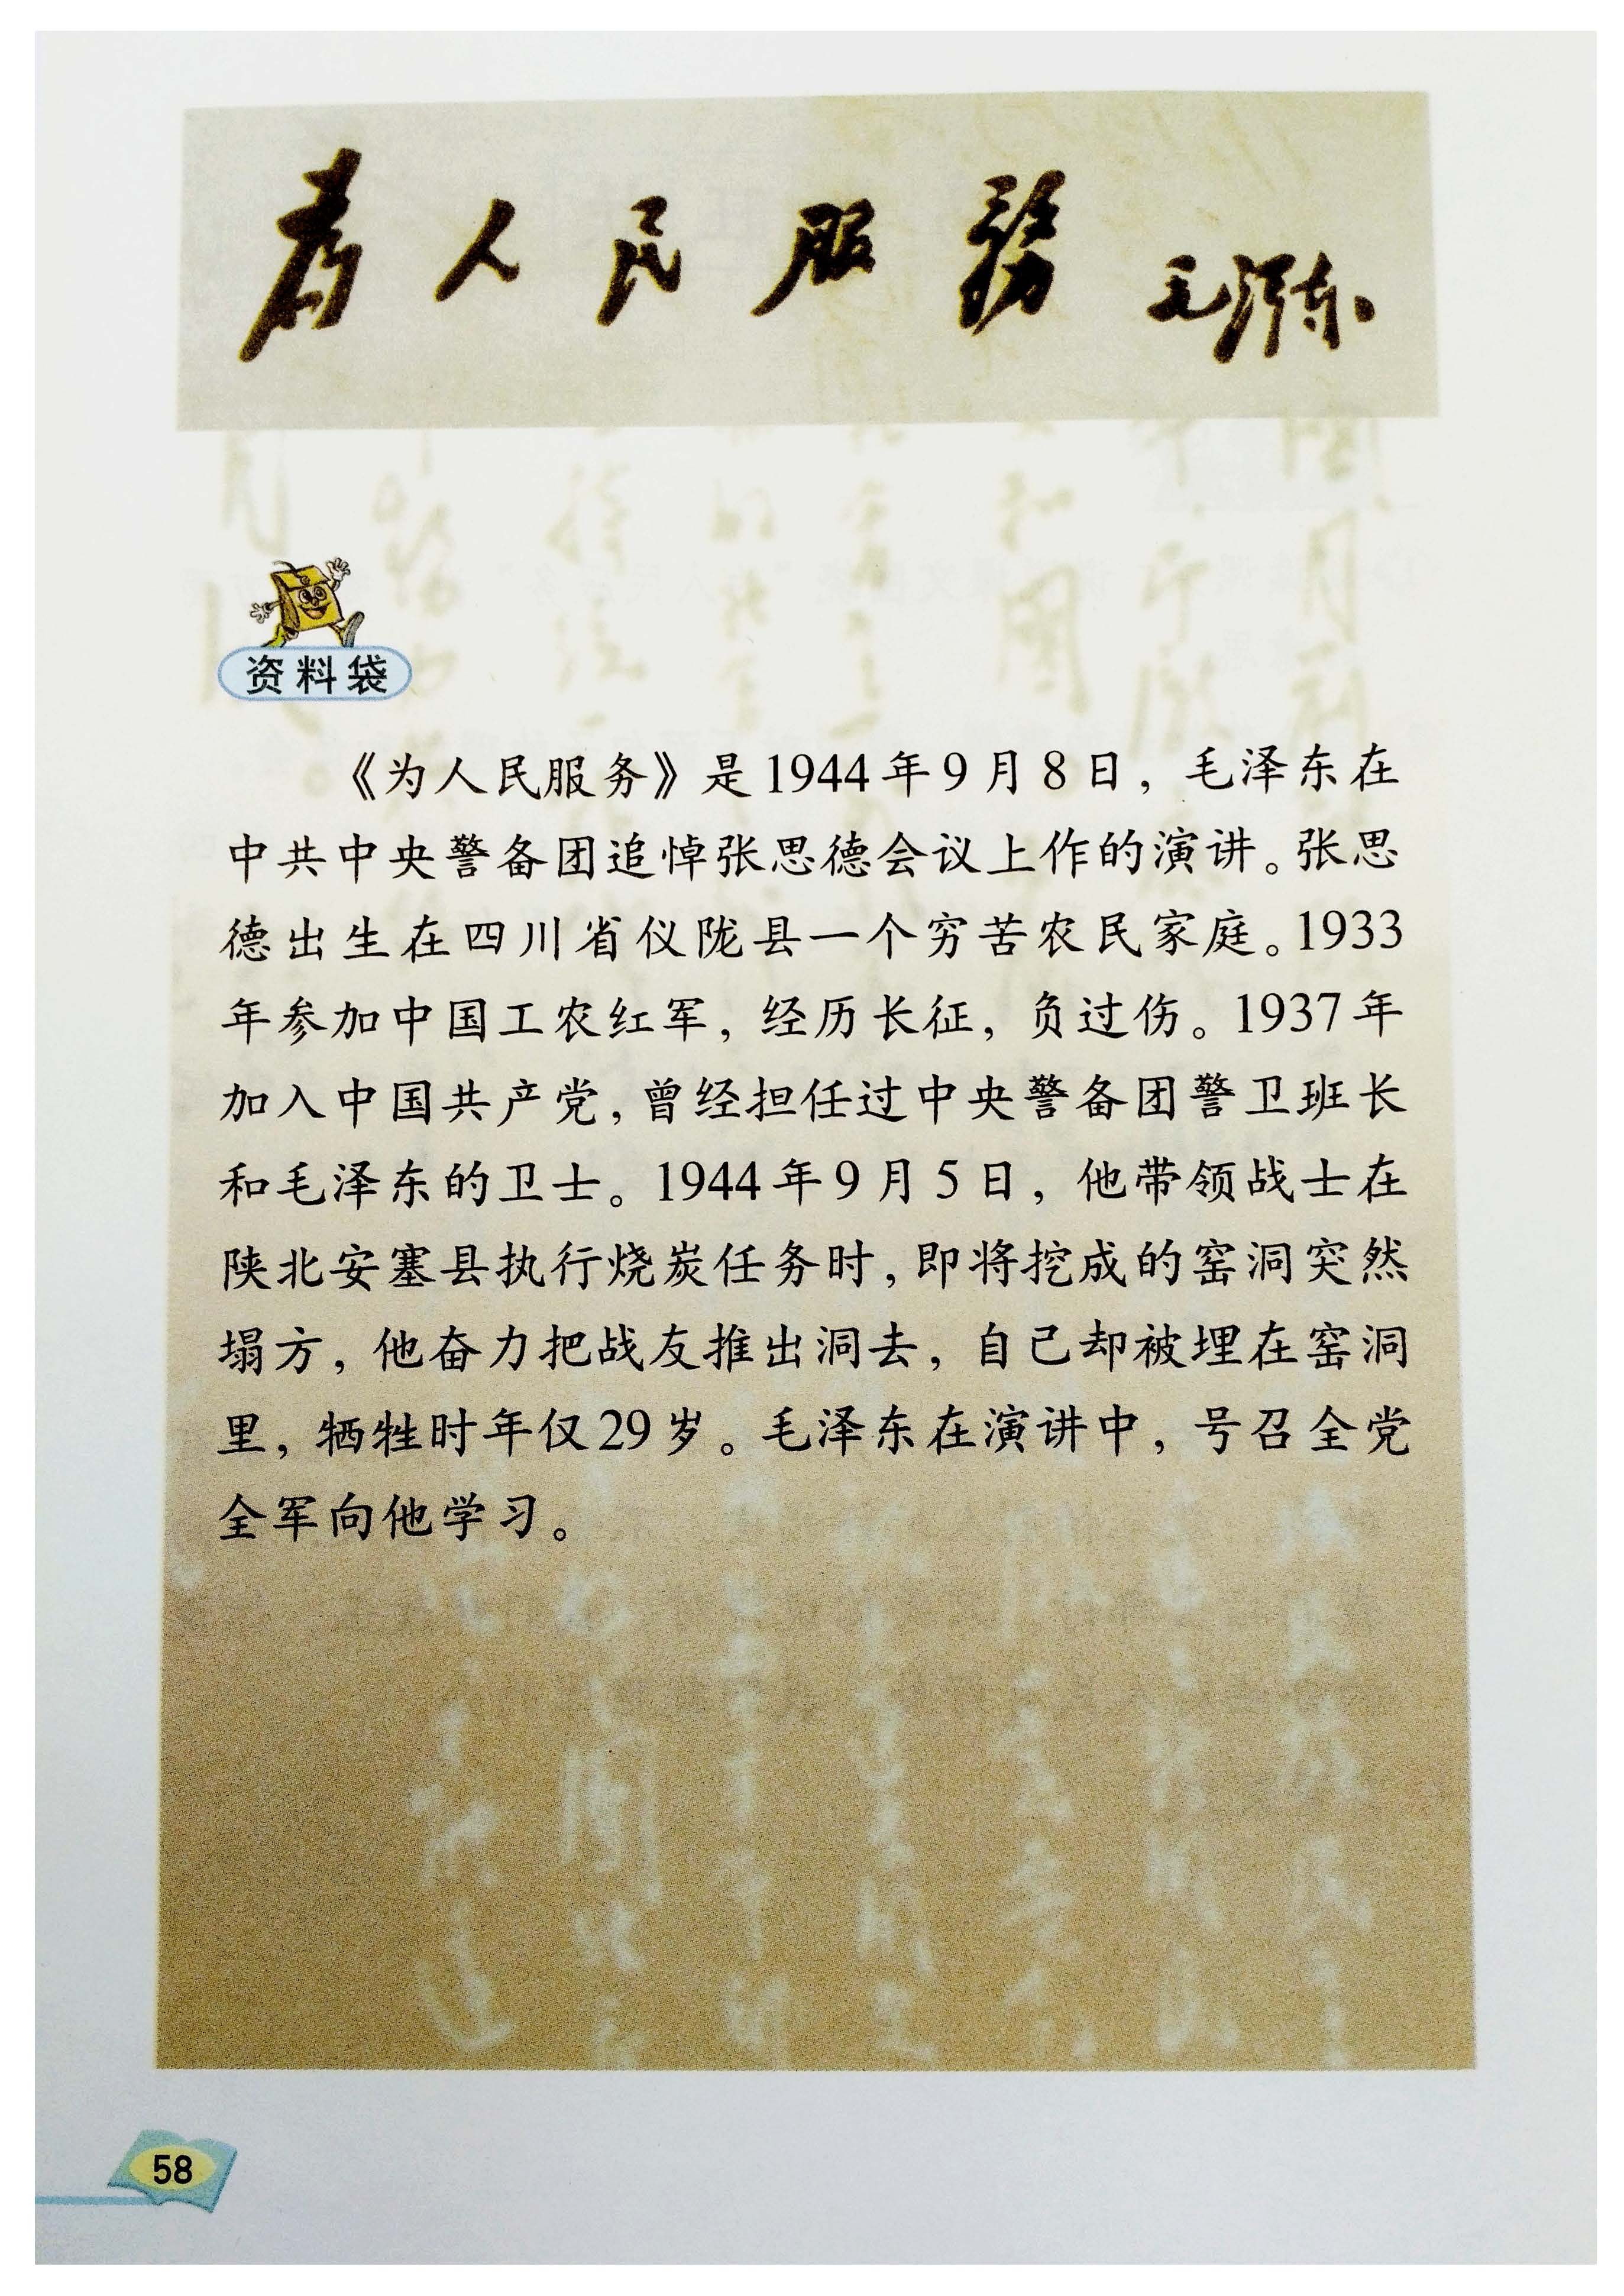 为人民服務 毛泽东
资料袋
《为人民服务》是1944年9月8日，毛泽东在
中共中央警备团追悼张思德会议上作的演讲。张思
德出生在四川省仪陇县一个穷苦农民家庭。1933
年参加中国工农红军，经历长征，负过伤。1937年
加入中国共产党，曾经担任过中央警备团警卫班长
和毛泽东的卫士。1944年9月5日，他带领战士在
陕北安塞县执行烧炭任务时，即将挖成的窑洞突然
塌方，他奋力把战友推出洞去，自己却被埋在窑洞
里，牺牲时年仅29岁。毛泽东在演讲中，号召全党
全军向他学习。
58